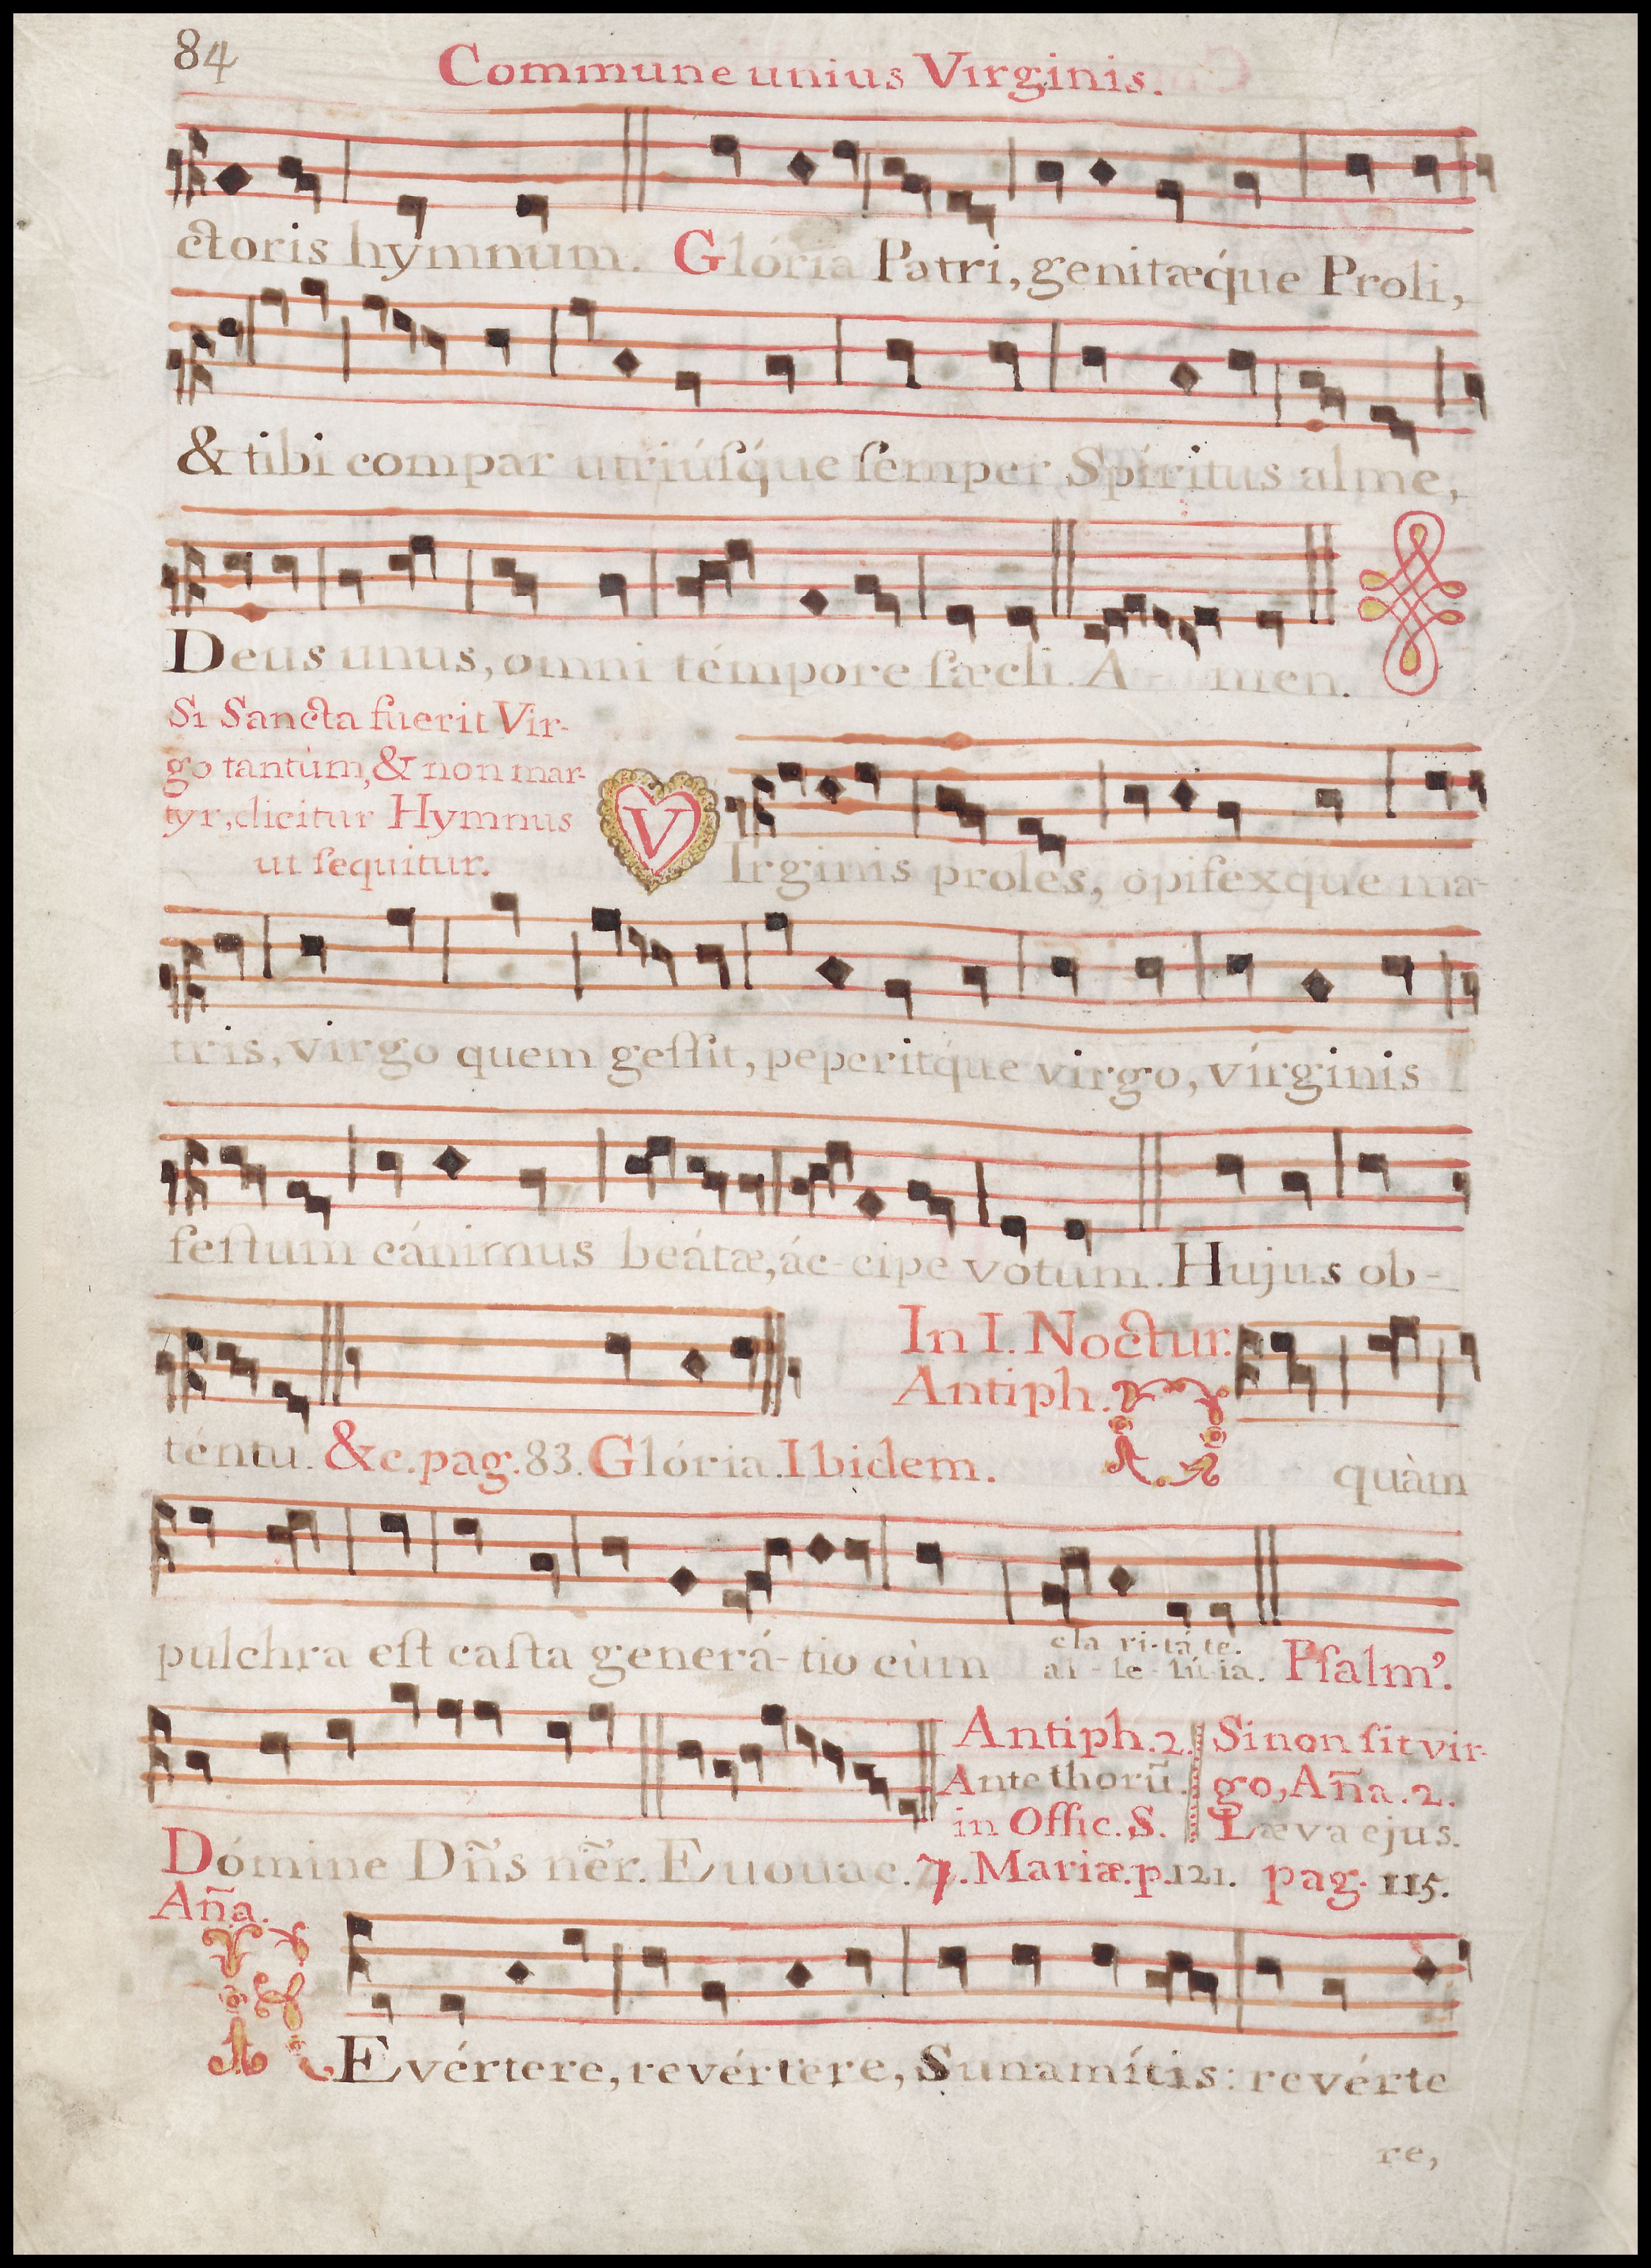 84
Commune unius Virginis.
ctoris hymnum. Glória Patri, genitæq́ue Proli,
& tibi compar utriúſq́ue ſemper Spíritus alme,
Deus unus, omni témpore ſæcli. A - men.
Si Sancta fuerit Vir-
go tantùm, & non mar-
tyr, dicitur Hymnus
ut ſequitur.
VIrginis proles, opifexque ma-
tris, virgo quem geſſit, peperitq́ue virgo, vírginis
feſtum cánimus beátæ, ác-cipe votum. Hujus ob-
téntu. &c. pag. 83. Glória. Ibidem.
In I. Noctur.
Antiph.
O quàm
pulchra eſt caſta generá-tio cùm
cla ri-tá te.
al - le - lú-ia. Pſalm⁹.
Antiph. 2.
Ante thorū.
in Offic. S.
Si non ſit vir-
go, Añā. 2.
Læva ejus.
Dómine Dn̄s nēr. Euouae. 7. Mariæ. p. 121. pag. 115.
Añā.
REvértere, revértere, Sunamítis: revérte
re,